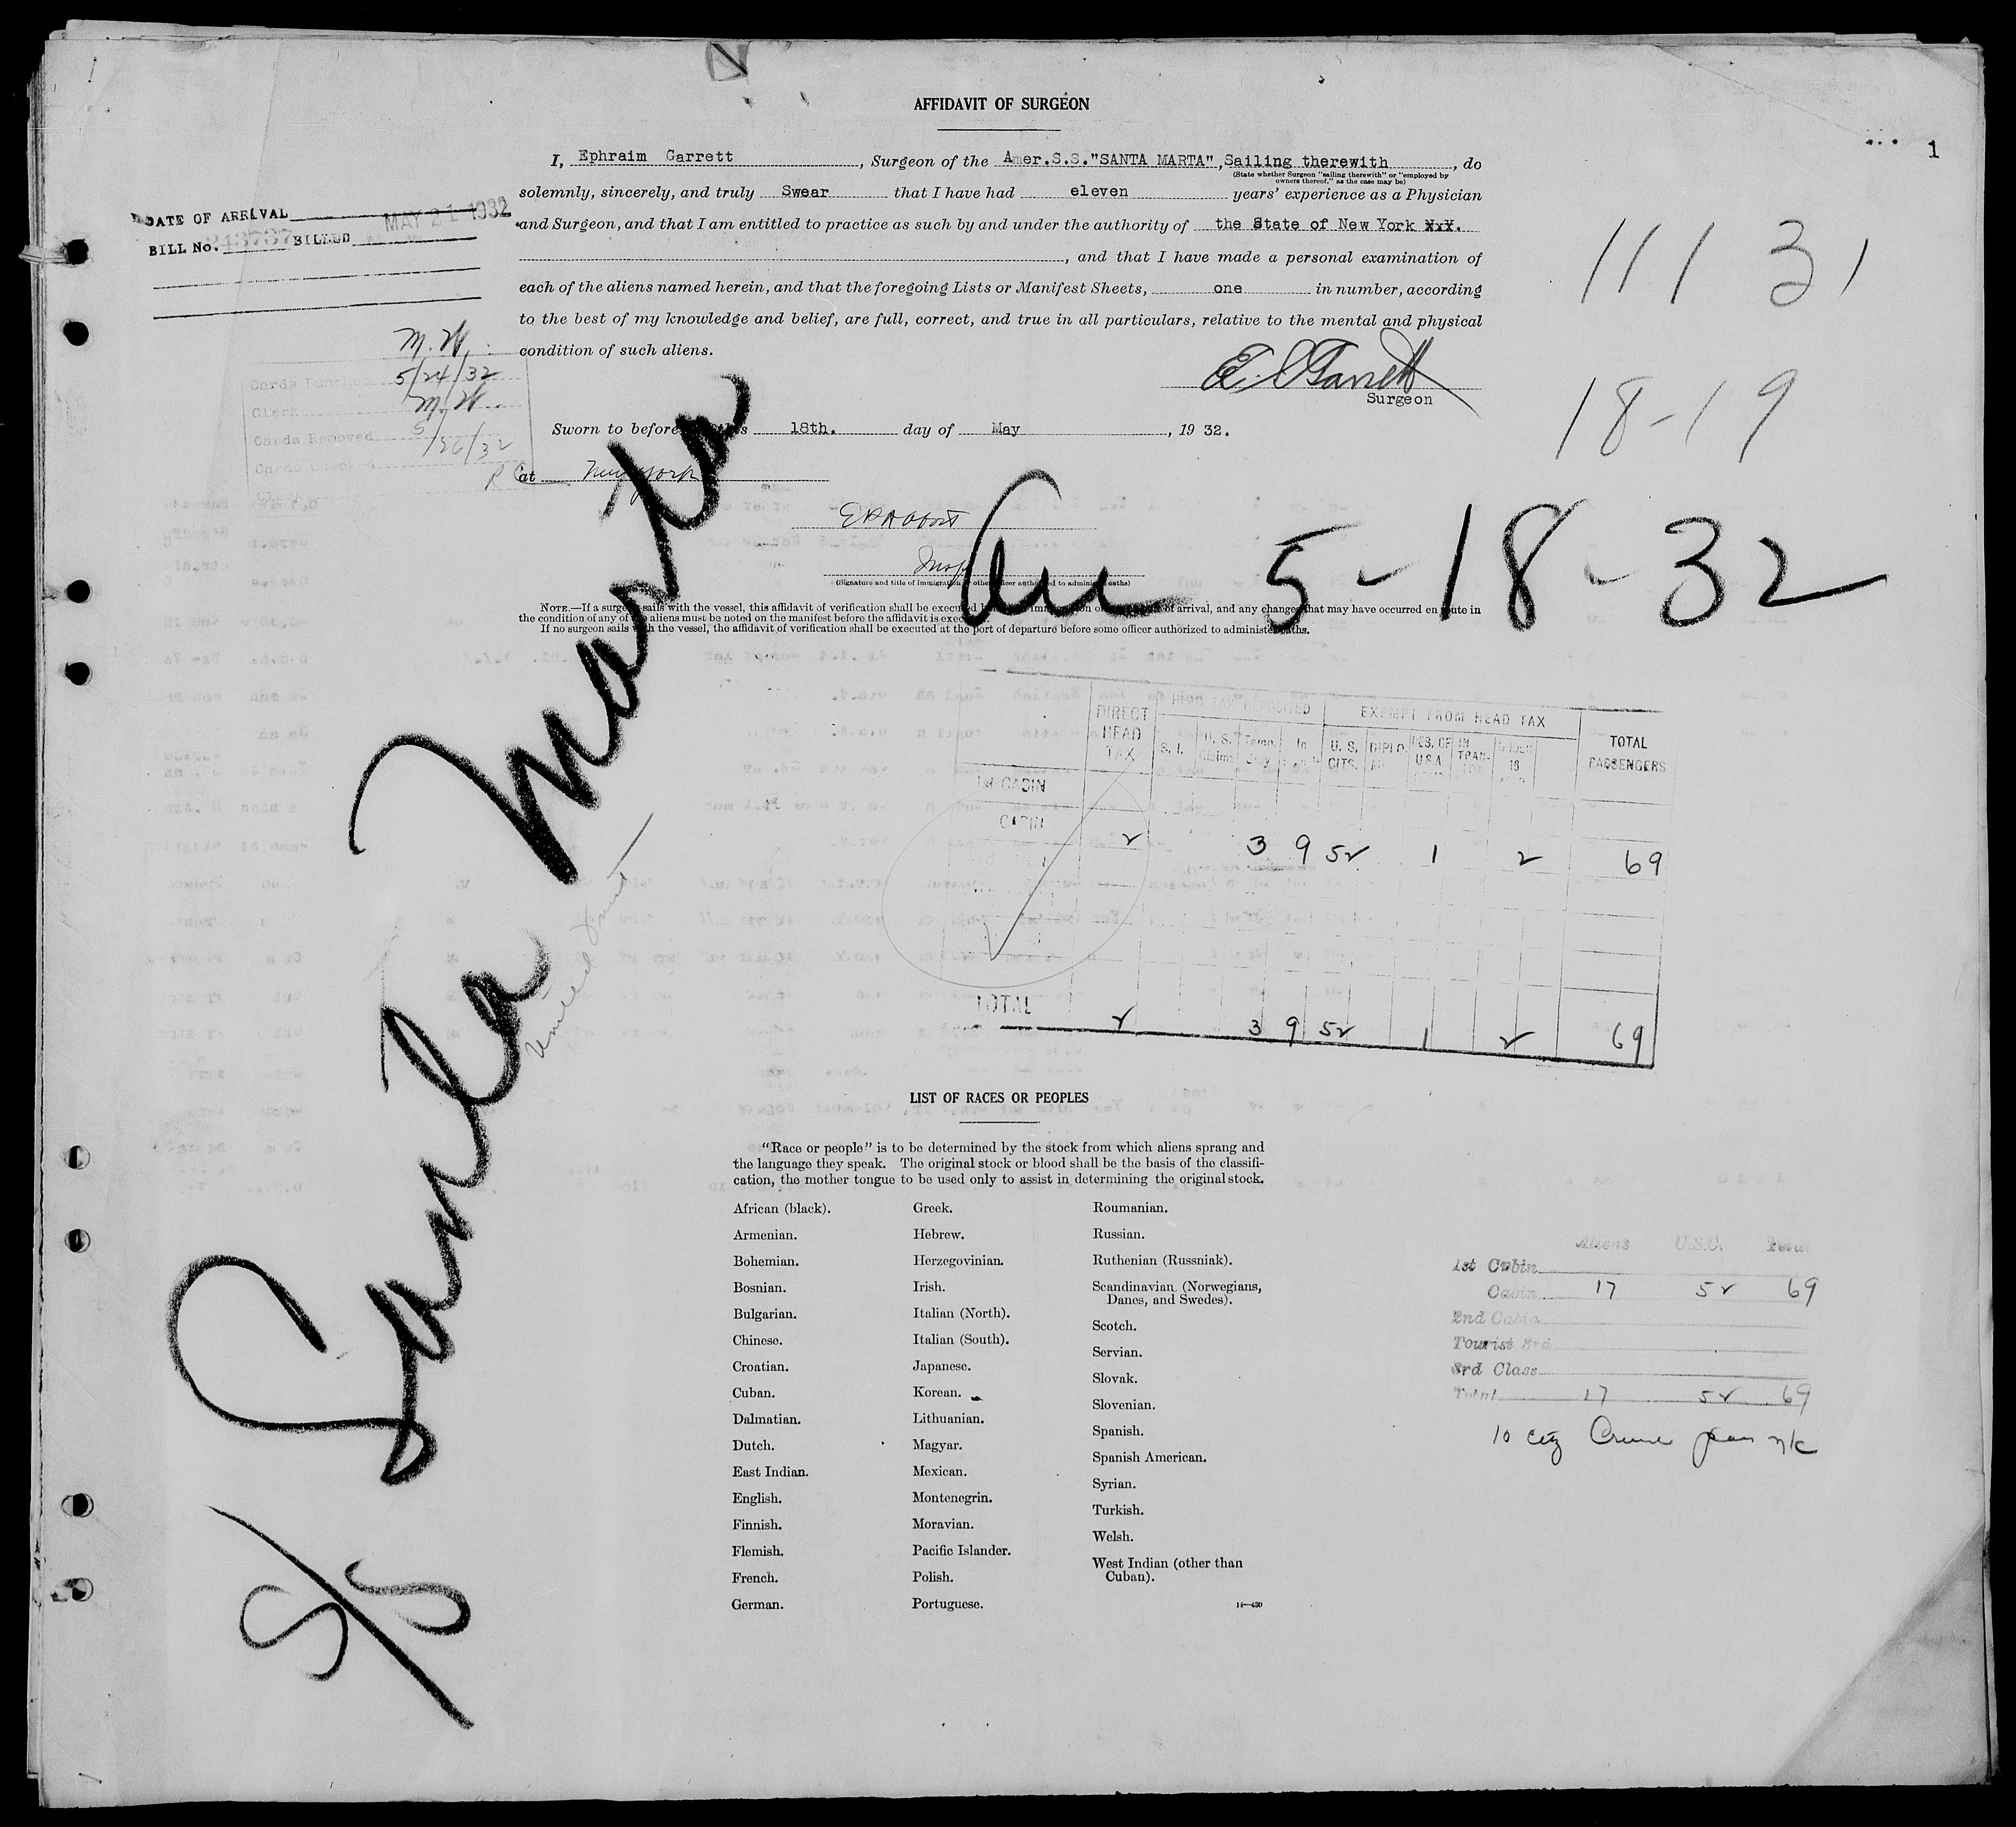 AFFIDAVIT OF SURGEON
1
I, Ephraim Garrett, Surgeon of the Amer.S.S."SANTA MARTA",Sailing therewith, do
(State whether Surgeon "sailing therewith" or "employed by
owners thereof," as the case may be)
solemnly, sincerely, and truly Swear that I have had eleven years' experience as a Physician
and Surgeon, and that I am entitled to practice as such by and under the authority of the State of New York XxX.
, and that I have made a personal examination of
each of the aliens named herein, and that the foregoing Lists or Manifest Sheets, one in number, according
to the best of my knowledge and belief, are full, correct, and true in all particulars, relative to the mental and physical
condition of such aliens.
DATE OF ARRIVAL MAY 21 1932
BILL No. 243737 BILLED
111 31
18-19
M.W.
Cards Punched 5/24/32
Clerk M.W.
Cards Removed 5/26/32
Cards Checked
Clerk
E. Garrett
Surgeon
Sworn to before 18th. day of May, 1932.
at New York
Insp
(Signature and title of immigration or other officer authorized to administer oaths)
5-18-32
NOTE.—If a surgeon sails with the vessel, this affidavit of verification shall be executed of arrival, and any changes that may have occurred en route in
the condition of any of the aliens must be noted on the manifest before the affidavit is
If no surgeon sails with the vessel, the affidavit of verification shall be executed at the port of departure before some officer authorized to administer oaths.
S/S Santa Marta
United Fruit
DIRECT HEAD TAX
HEAD TAX DEPOSITED
EXEMPT FROM HEAD TAX
TOTAL PASSENGERS
S. I. U. S. Claims Temp. Stay In U. S. CITS. DIPLO. RES. OF U.S.A. IN TRAN- UNDER 16
1st CABIN
CABIN 2 3 9 52 1 2 69
TOTAL 2 3 9 52 1 2 69
LIST OF RACES OR PEOPLES
"Race or people" is to be determined by the stock from which aliens sprang and
the language they speak. The original stock or blood shall be the basis of the classifi-
cation, the mother tongue to be used only to assist in determining the original stock.
African (black).
Armenian.
Bohemian.
Bosnian.
Bulgarian.
Chinese.
Croatian.
Cuban.
Dalmatian.
Dutch.
East Indian.
English.
Finnish.
Flemish.
French.
German.
Greek.
Hebrew.
Herzegovinian.
Irish.
Italian (North).
Italian (South).
Japanese.
Korean.
Lithuanian.
Magyar.
Mexican.
Montenegrin.
Moravian.
Pacific Islander.
Polish.
Portuguese.
Roumanian.
Russian.
Ruthenian (Russniak).
Scandinavian (Norwegians,
Danes, and Swedes).
Scotch.
Servian.
Slovak.
Slovenian.
Spanish.
Spanish American.
Syrian.
Turkish.
Welsh.
West Indian (other than
Cuban).
14—430
Aliens U.S.C. Total
1st Cabin
Cabin 17 52 69
2nd Cabin
Tourist 3rd
3rd Class
Total 17 52 69
10